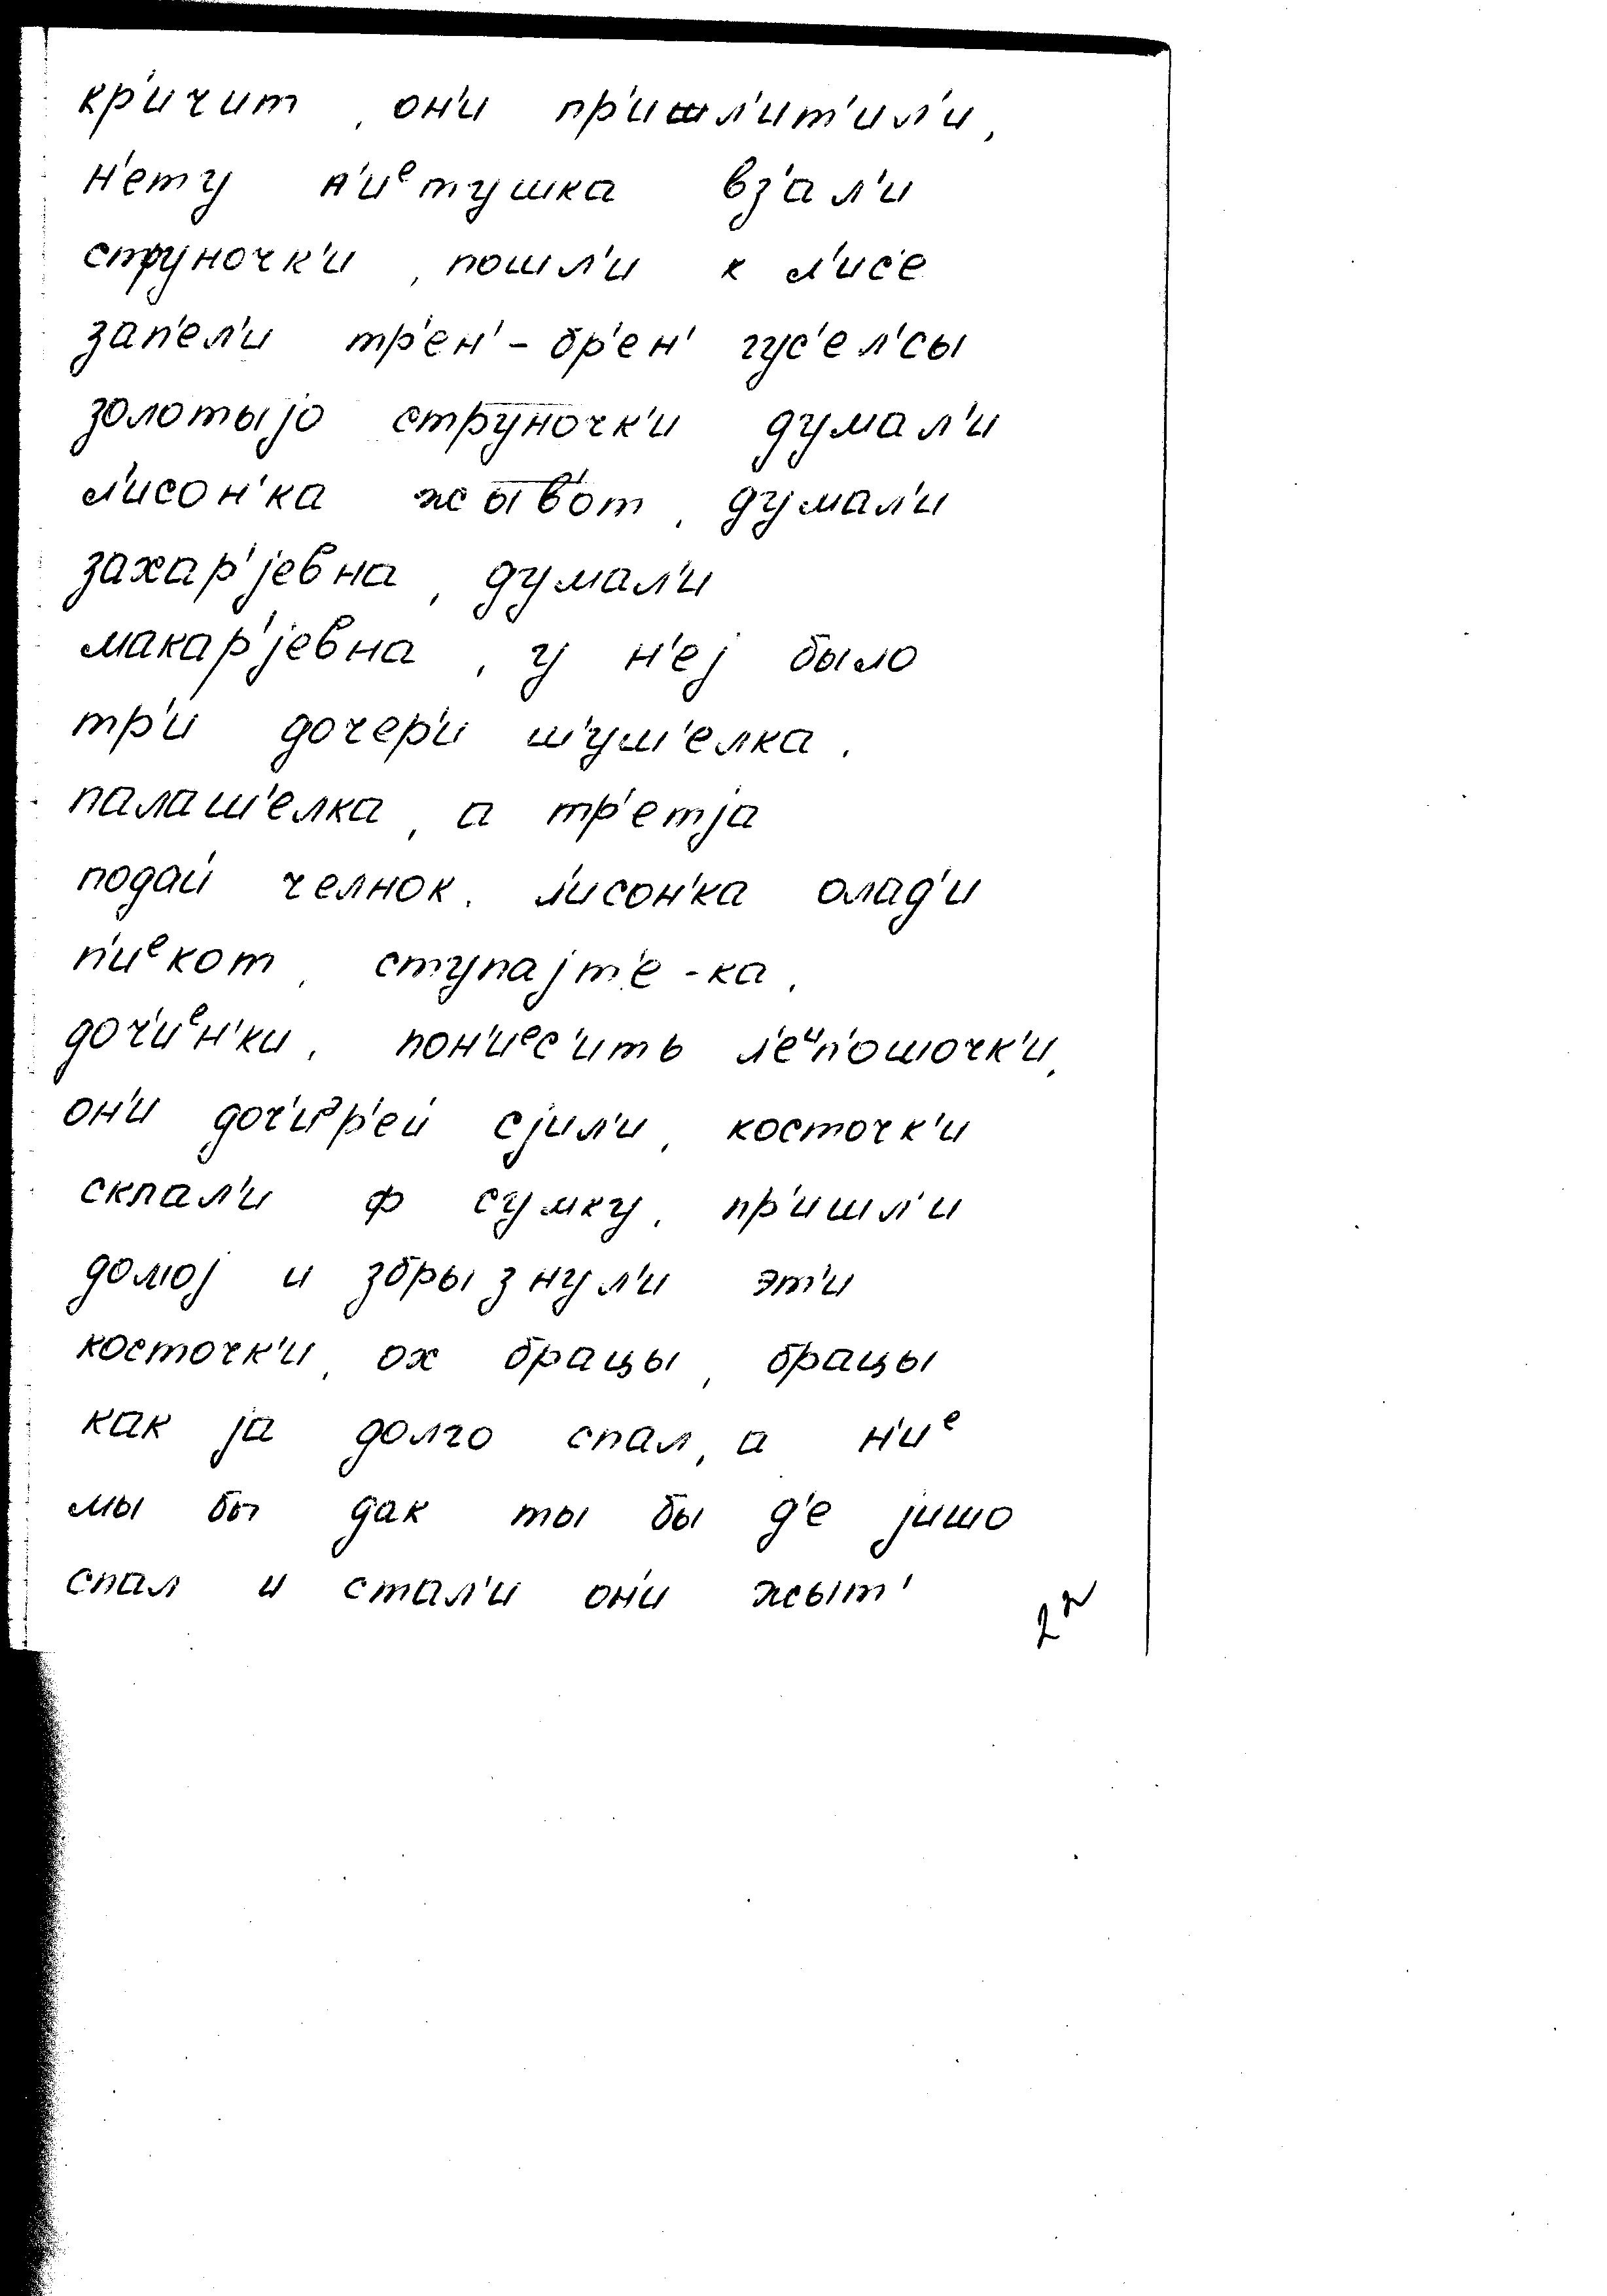 кр'ичит, он'и пр'ишл'ит'ил'и,
н'ету п'иᵉтушка вз'ал'и
струночк'и, пошл'и к л'ис'е
зап'ел'и тр'ен'-бр'ен' гус'ел'сы
золотыjо струночк'и думал'и
л'исон'ка жыв'от, думал'и
захар'jевна, думал'и
макар'jевна, у н'еj было
тр'и дочер'и ш'уш'елка,
палаш'елка, а тр'етjа
подай челнок. л'исон'ка олад'и
п'иᵉкот, ступаjт'е-ка,
доч'иᵉн'ки, пон'иᵉс'ить л'еᵘп'ошочк'и,
он'и доч'иᵉр'ей сjил'и, косточк'и
склал'и ф сумку, пр'ишл'и
домоj и збрызнул'и эт'и
косточк'и, ох брацы, брацы
как jа долго спал, а н'иᵉ
мы бы дак ты бы д'е jишо
спал и стал'и он'и жыт'